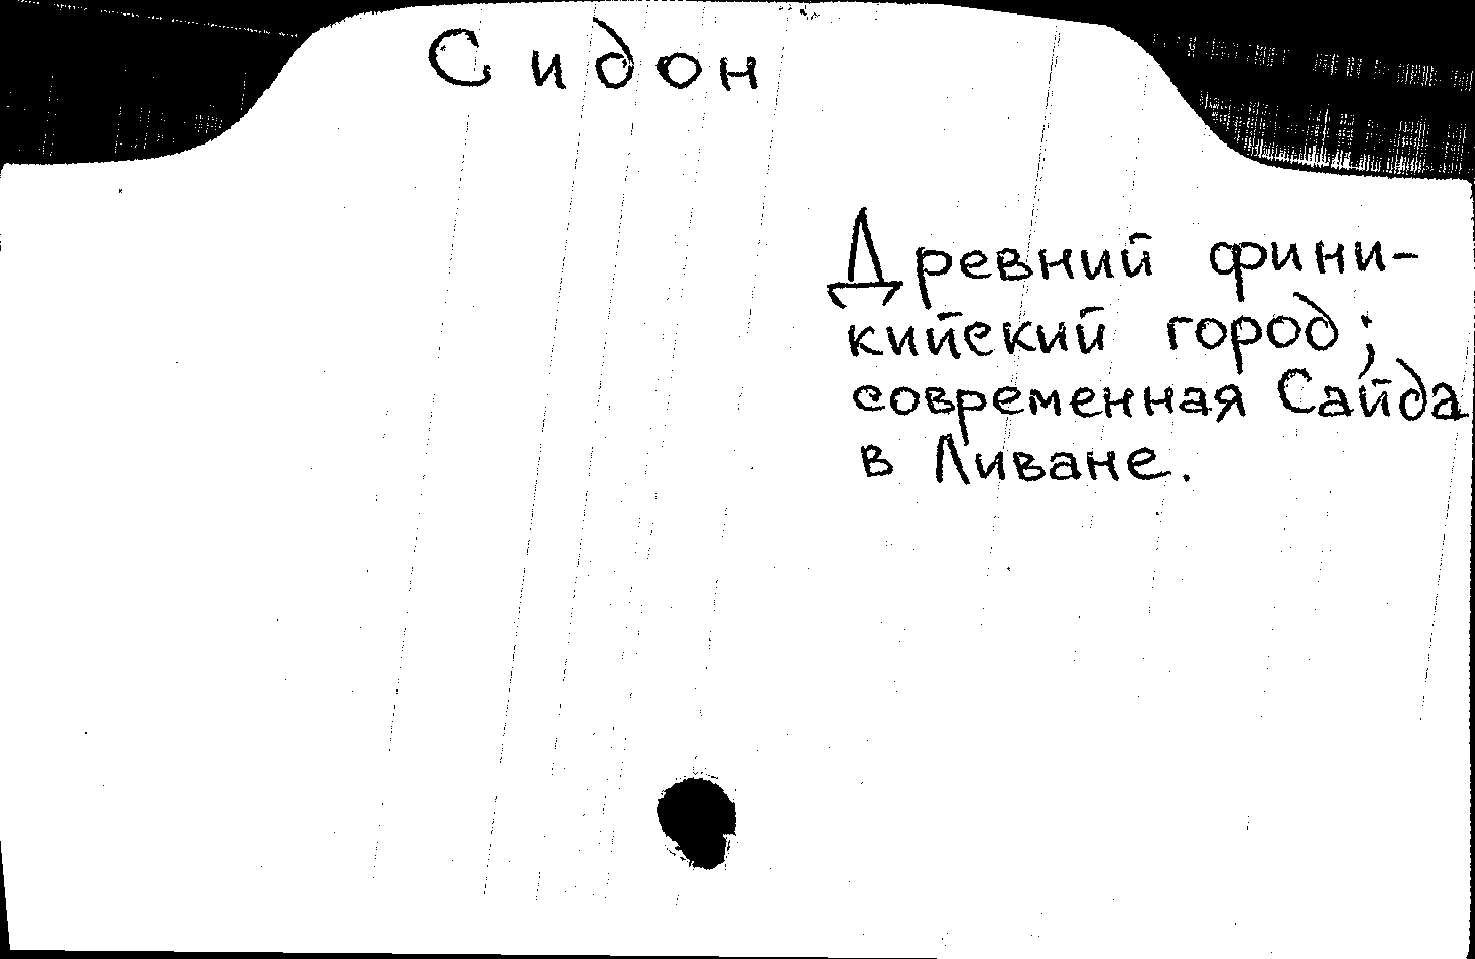 Сидон
Древний фини-
кийский город;
современная Сайда
в Ливане.